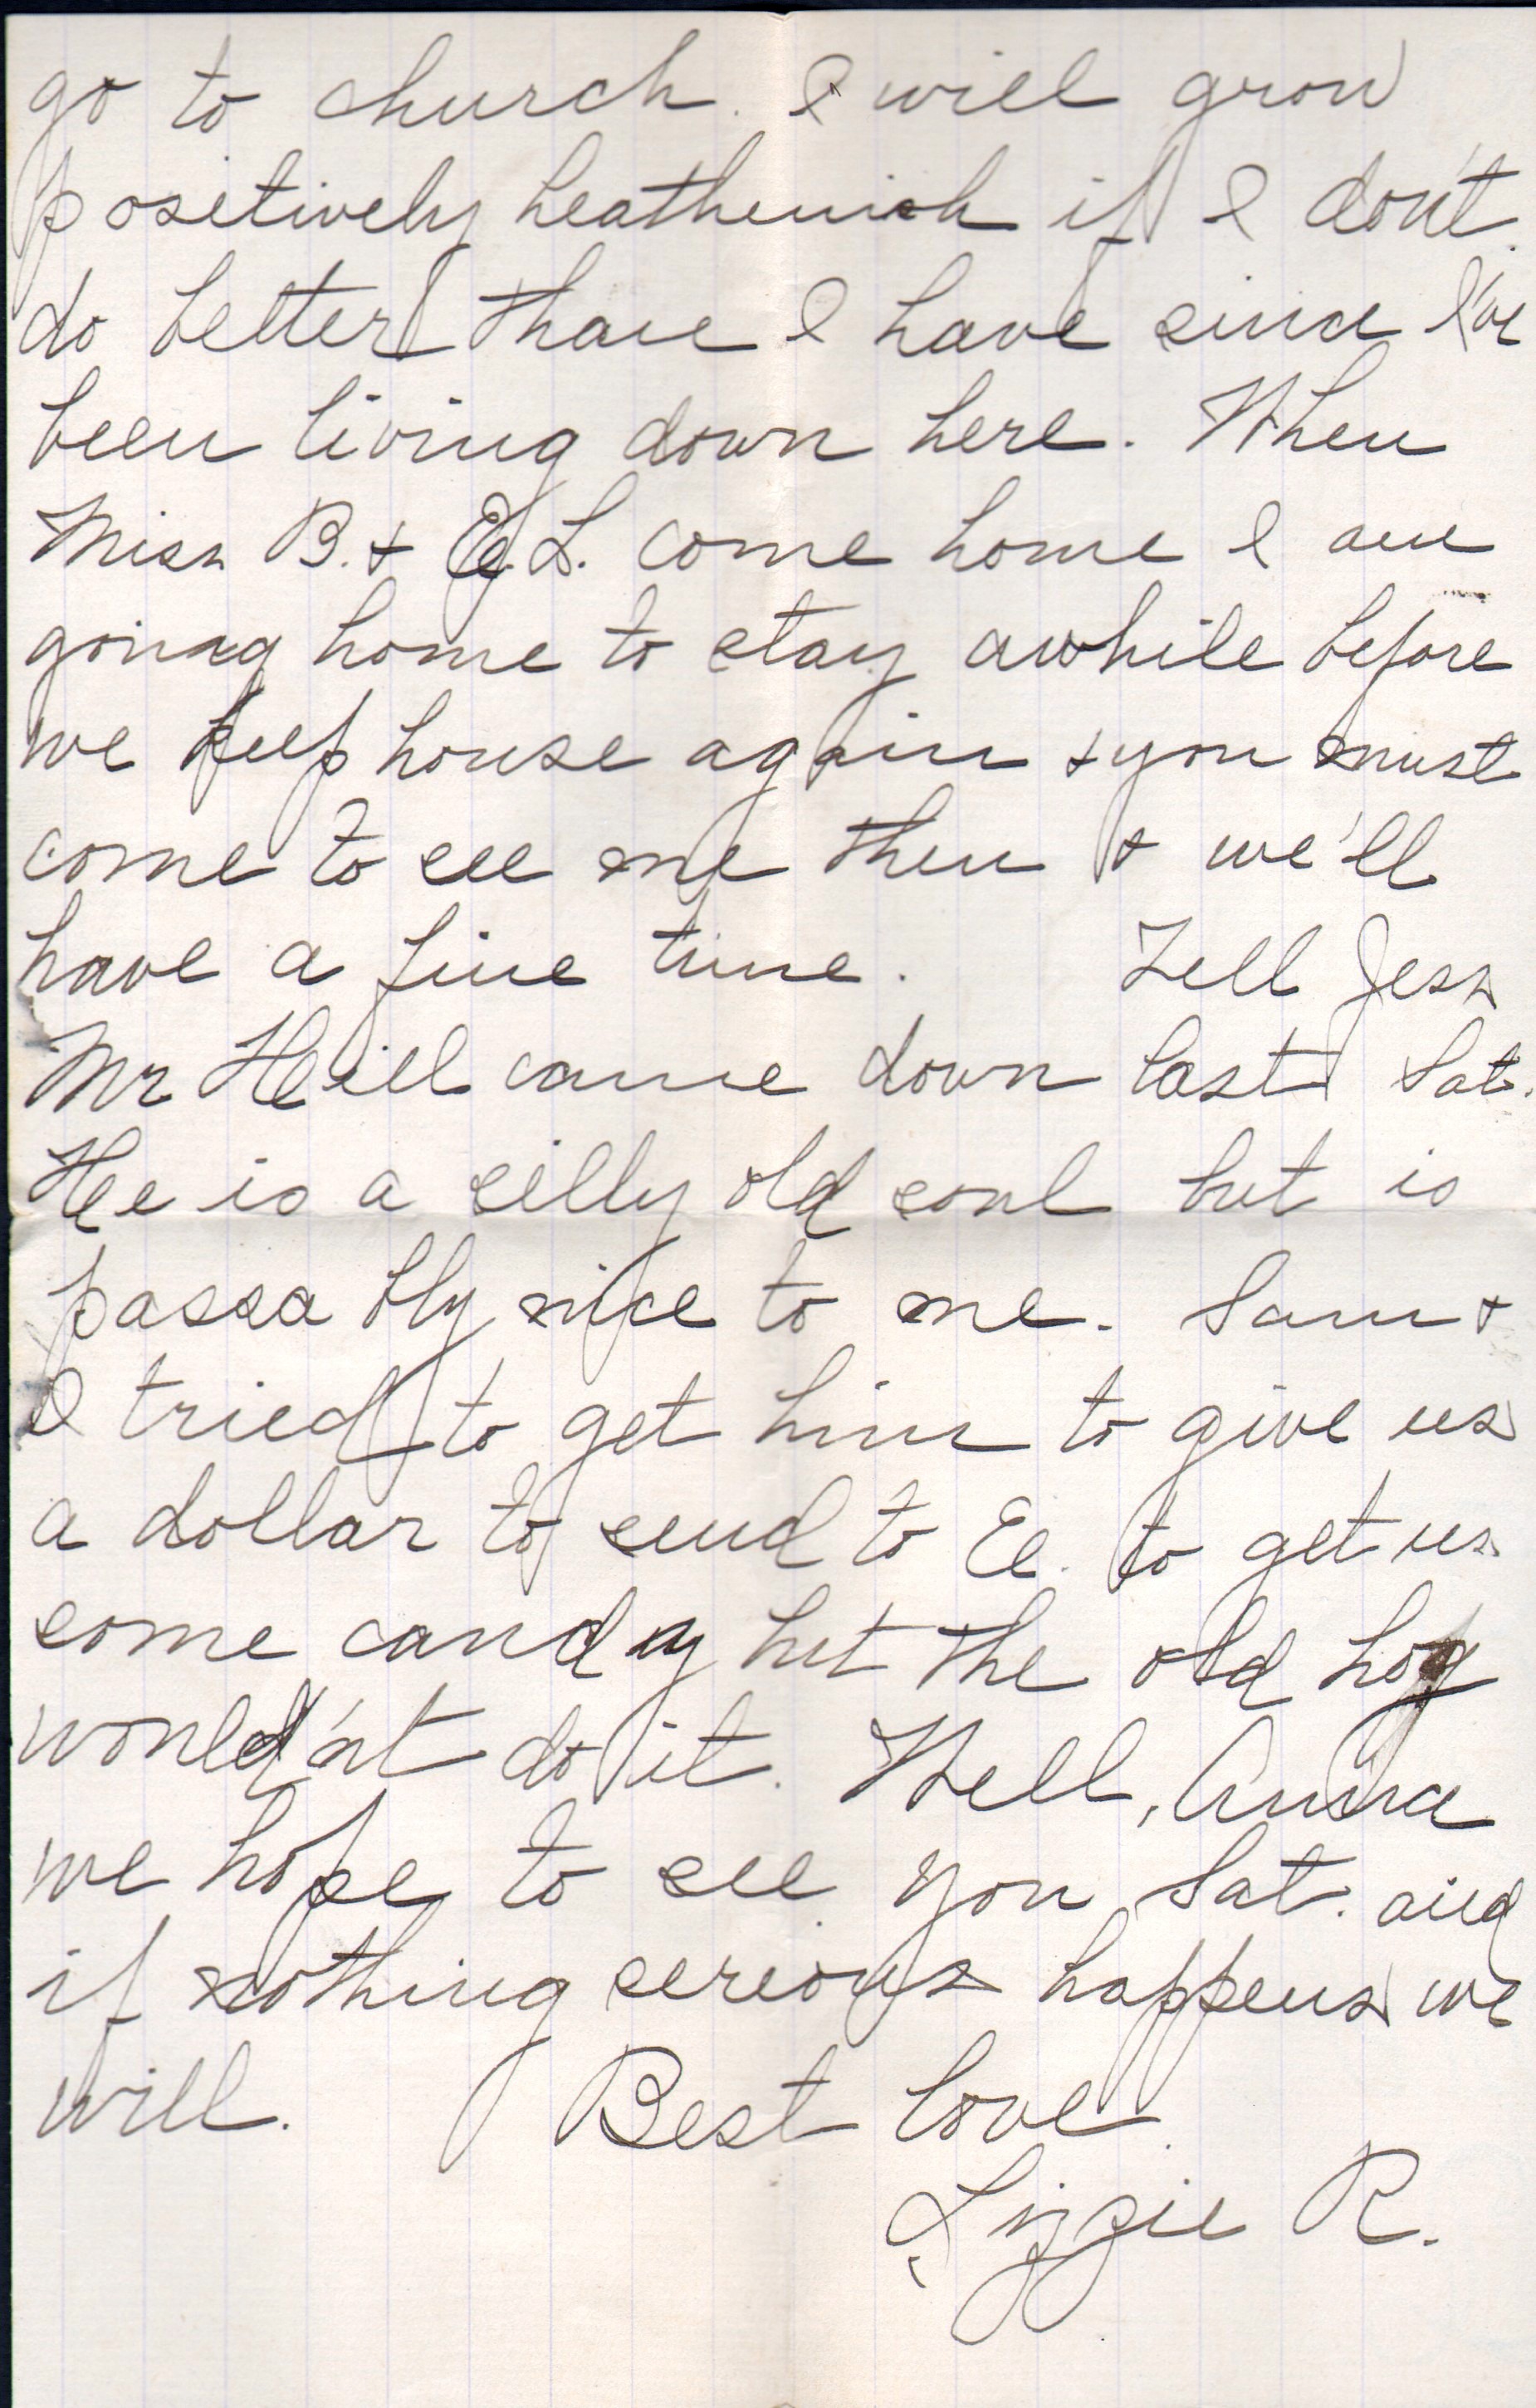 go to church. I will grow
positively heathenish if I don't
do better than I have since I've
been living down here. When
Miss B. & El. L. come home I am
going home to stay awhile before
we keep house again & you must
come to see me then & we'll
have a fine time. Tell Jess
Mr Heill came down last Sat.
He is a silly old soul but is
passably nice to me. Sam &
I tried to get him to give us
a dollar to send to El. to get us
some candy but the old hog
would'nt do it. Well, Anna
we hope to see you Sat. and
if nothing serious happens we
will. Best love.
Lizzie R.